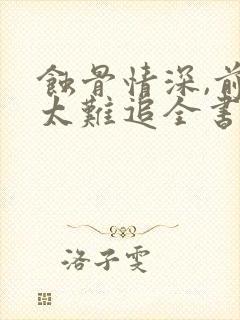 蝕骨情深,前
太難追全書
洛子雯